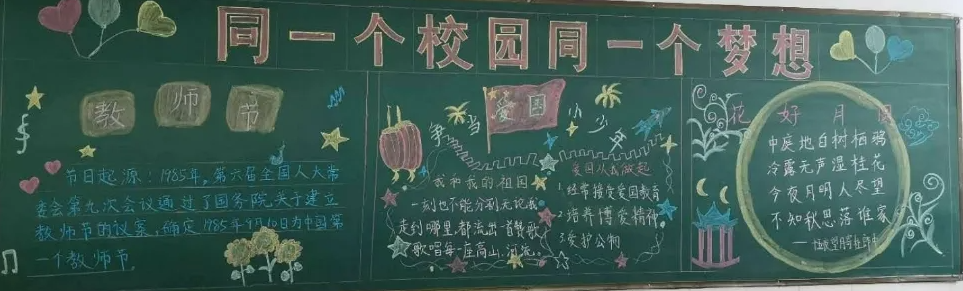 同一个校园同一个梦想
教师节
节日起源：1985年，第六届全国人大常
委会第九次会议通过了国务院关于建立
教师节的议案，确定1985年9月10日为中国第
一个教师节
争当
爱国
小少年
我和我的祖国
一刻也不能分割无论我
走到哪里都流出一首赞歌
歌唱每一座高山、河流。
爱国从我做起
1.经常接受爱国教育
2.培养博爱精神
3.爱护公物
花好月圆
中庭地白树栖鸦
冷露无声湿桂花
今夜月明人尽望
不知秋思落谁家